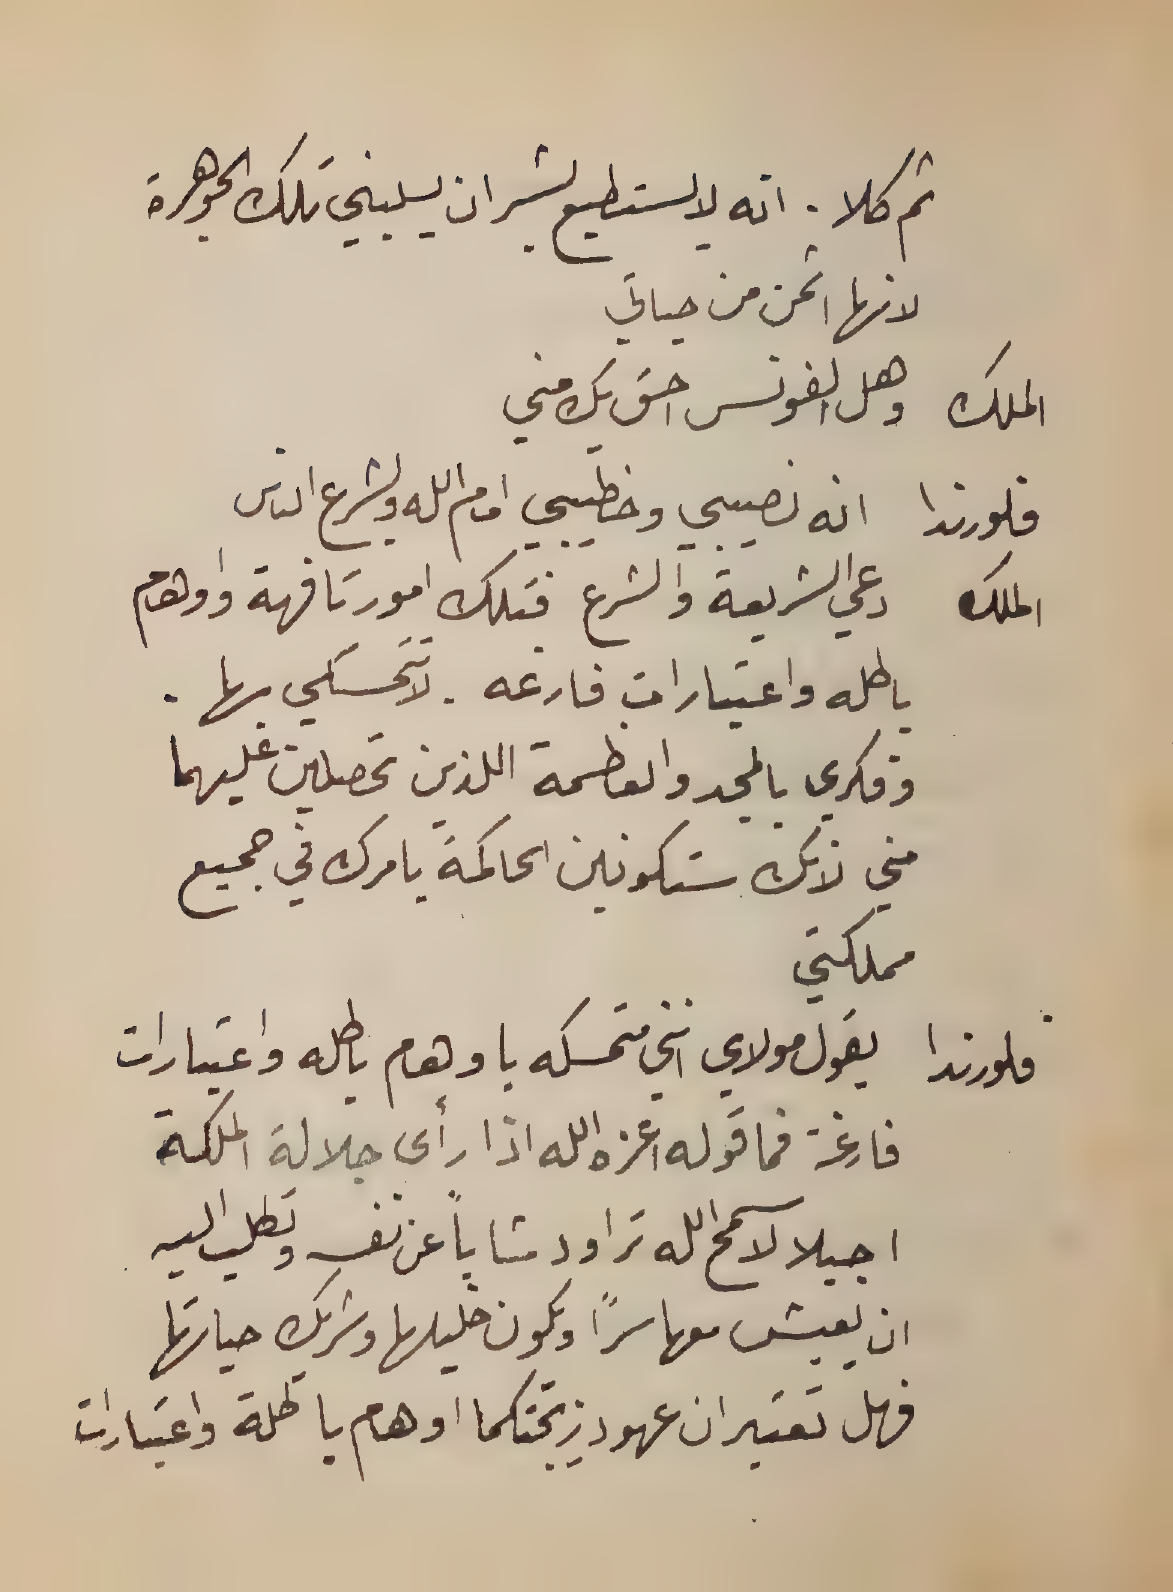 ثم كلا . انه لا يستطيع بشر ان يسلبني تلك الجوهرة
لانها اثمن من حياتي
الملك وهل الفونس احق بك مني
فلورندا انه نصيبي وخطيبي امام الله وبشرع الناس
الملك دعي الشريعة والشرع فتلك امور تافهة واوهام
باطله واعتبارات فارغه . لا تتمسكي بها .
وفكري بالمجد والعظمة اللذين تحصلين عليهما
مني لانك ستكونين الحاكمة بامرك في جميع
مملكتي
فلورندا يقول مولاي انني متمسكه باوهام باطله واعتبارات
فارغة فما قوله اعزه الله اذا رأى جلالة الملكة
اجيلا لا سمح الله تراود شاباً عن نفسه وتطلب اليه
ان يعيش معها سراً ويكون خليلها وشريك حياتها
فهل تعتبر ان عهود زيجتكما اوهام باطلة واعتبارات